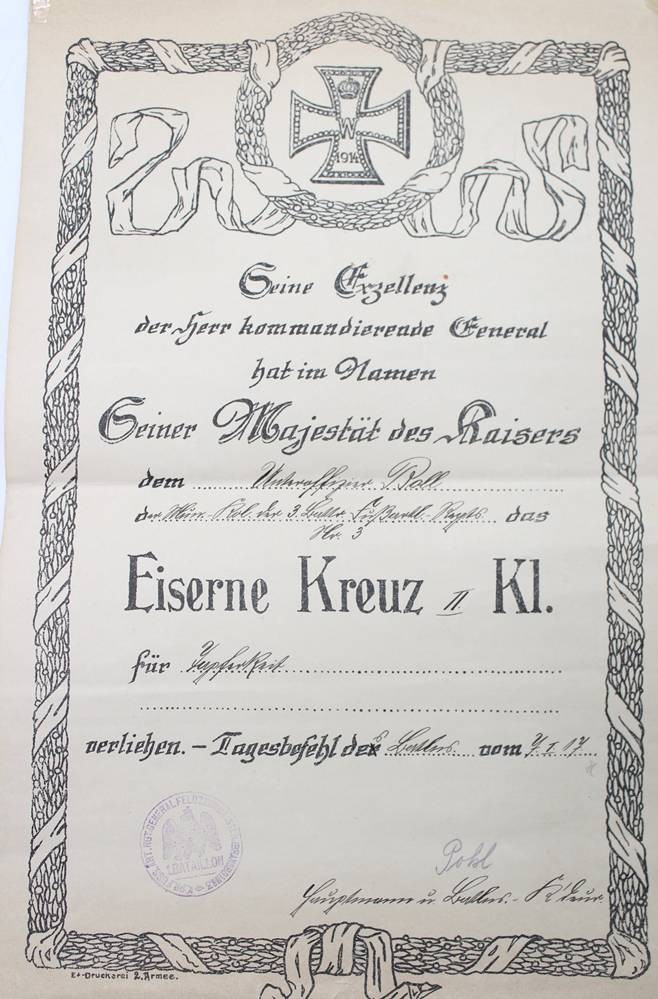 W
1914
Seine Exzellenz
der Herr kommandierende General
hat im Namen
Seiner Majestät des Kaisers
dem Unteroffizier Boll
der Mun. Kol. der 3. Battr. Fußartl. Regts. das
Nr. 3
Eiserne Kreuz II. Kl.
für Tapferkeit
verliehen. – Tagesbefehl des Batlns. vom 7.I.17
I. BATAILLON
Pohl
Hauptmann u. Batlns. - K'deur
E.-Druckerei 2. Armee.